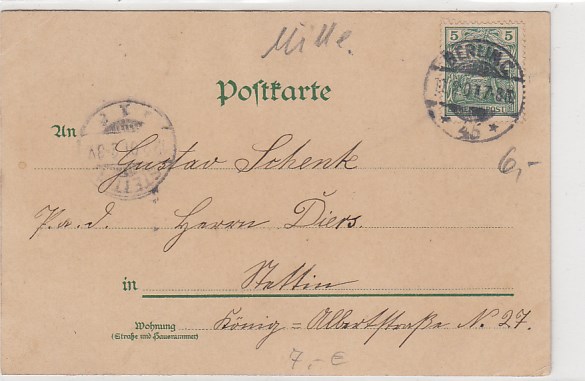 Mille.
5 5
BERLIN
Postkarte
* 45 *
6,-
An
Gustav Schenk
P. a. d. Herrn Diers.
in Stettin
Wohnung
(Straße und Hausnummer)
König=Albertstraße N. 27.
7,-€